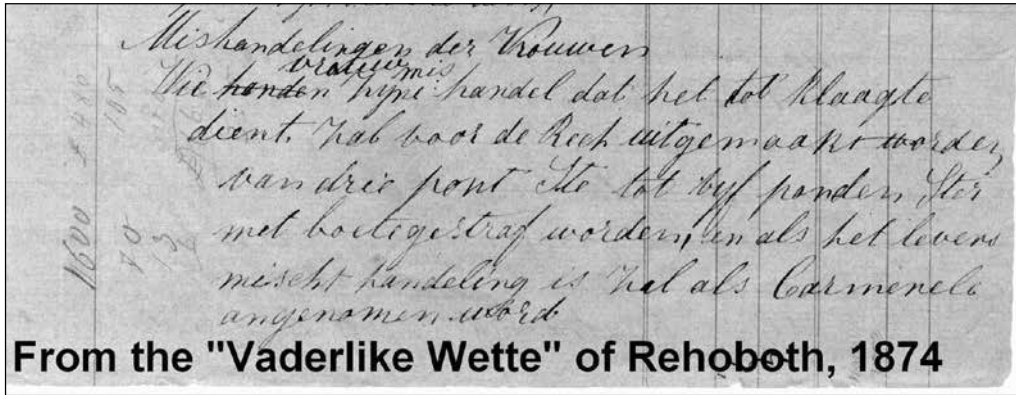 Mishandelingen der Vrouwen
vrouw mis
Wie honden zyne handel dat het tot klaagte
dient. Zal voor de Rech uitgemaakt worden,
van drie pont Ste tot vyf ponden Ster
met boetegestraf worden, en als het levens
mischt handeling is Zal als Carmenele
angenomen word
1600
70
105
From the "Vaderlike Wette" of Rehoboth, 1874